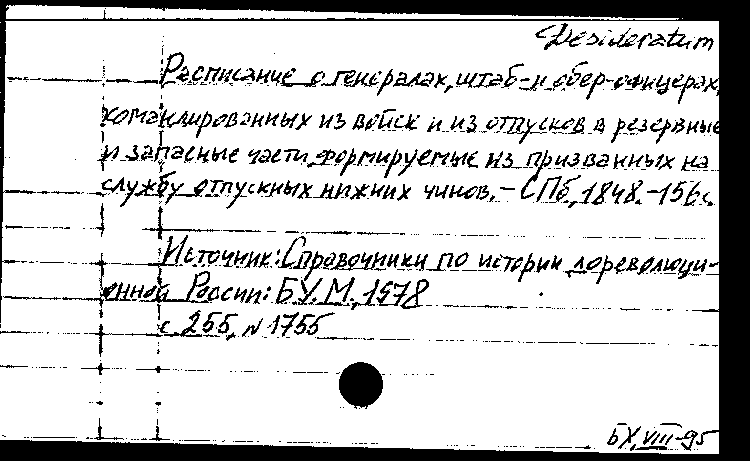 Desideratum
Расписание о генералах, штаб- и обер-офицерах,
командированных из войск и из отпусков в резервные
и запасные части, формируемые из призванных на
службу отпускных нижних чинов. – СПб, 1848. – 156 с.
Источник: Справочники по истории дореволюци-
онной России: БУ. М., 1978
с 255, N 1755
БХ, VIII-95